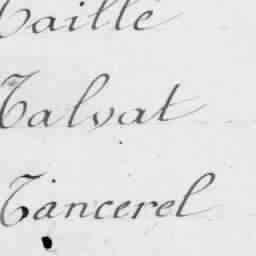 Taillé
Talvat
Tancerel